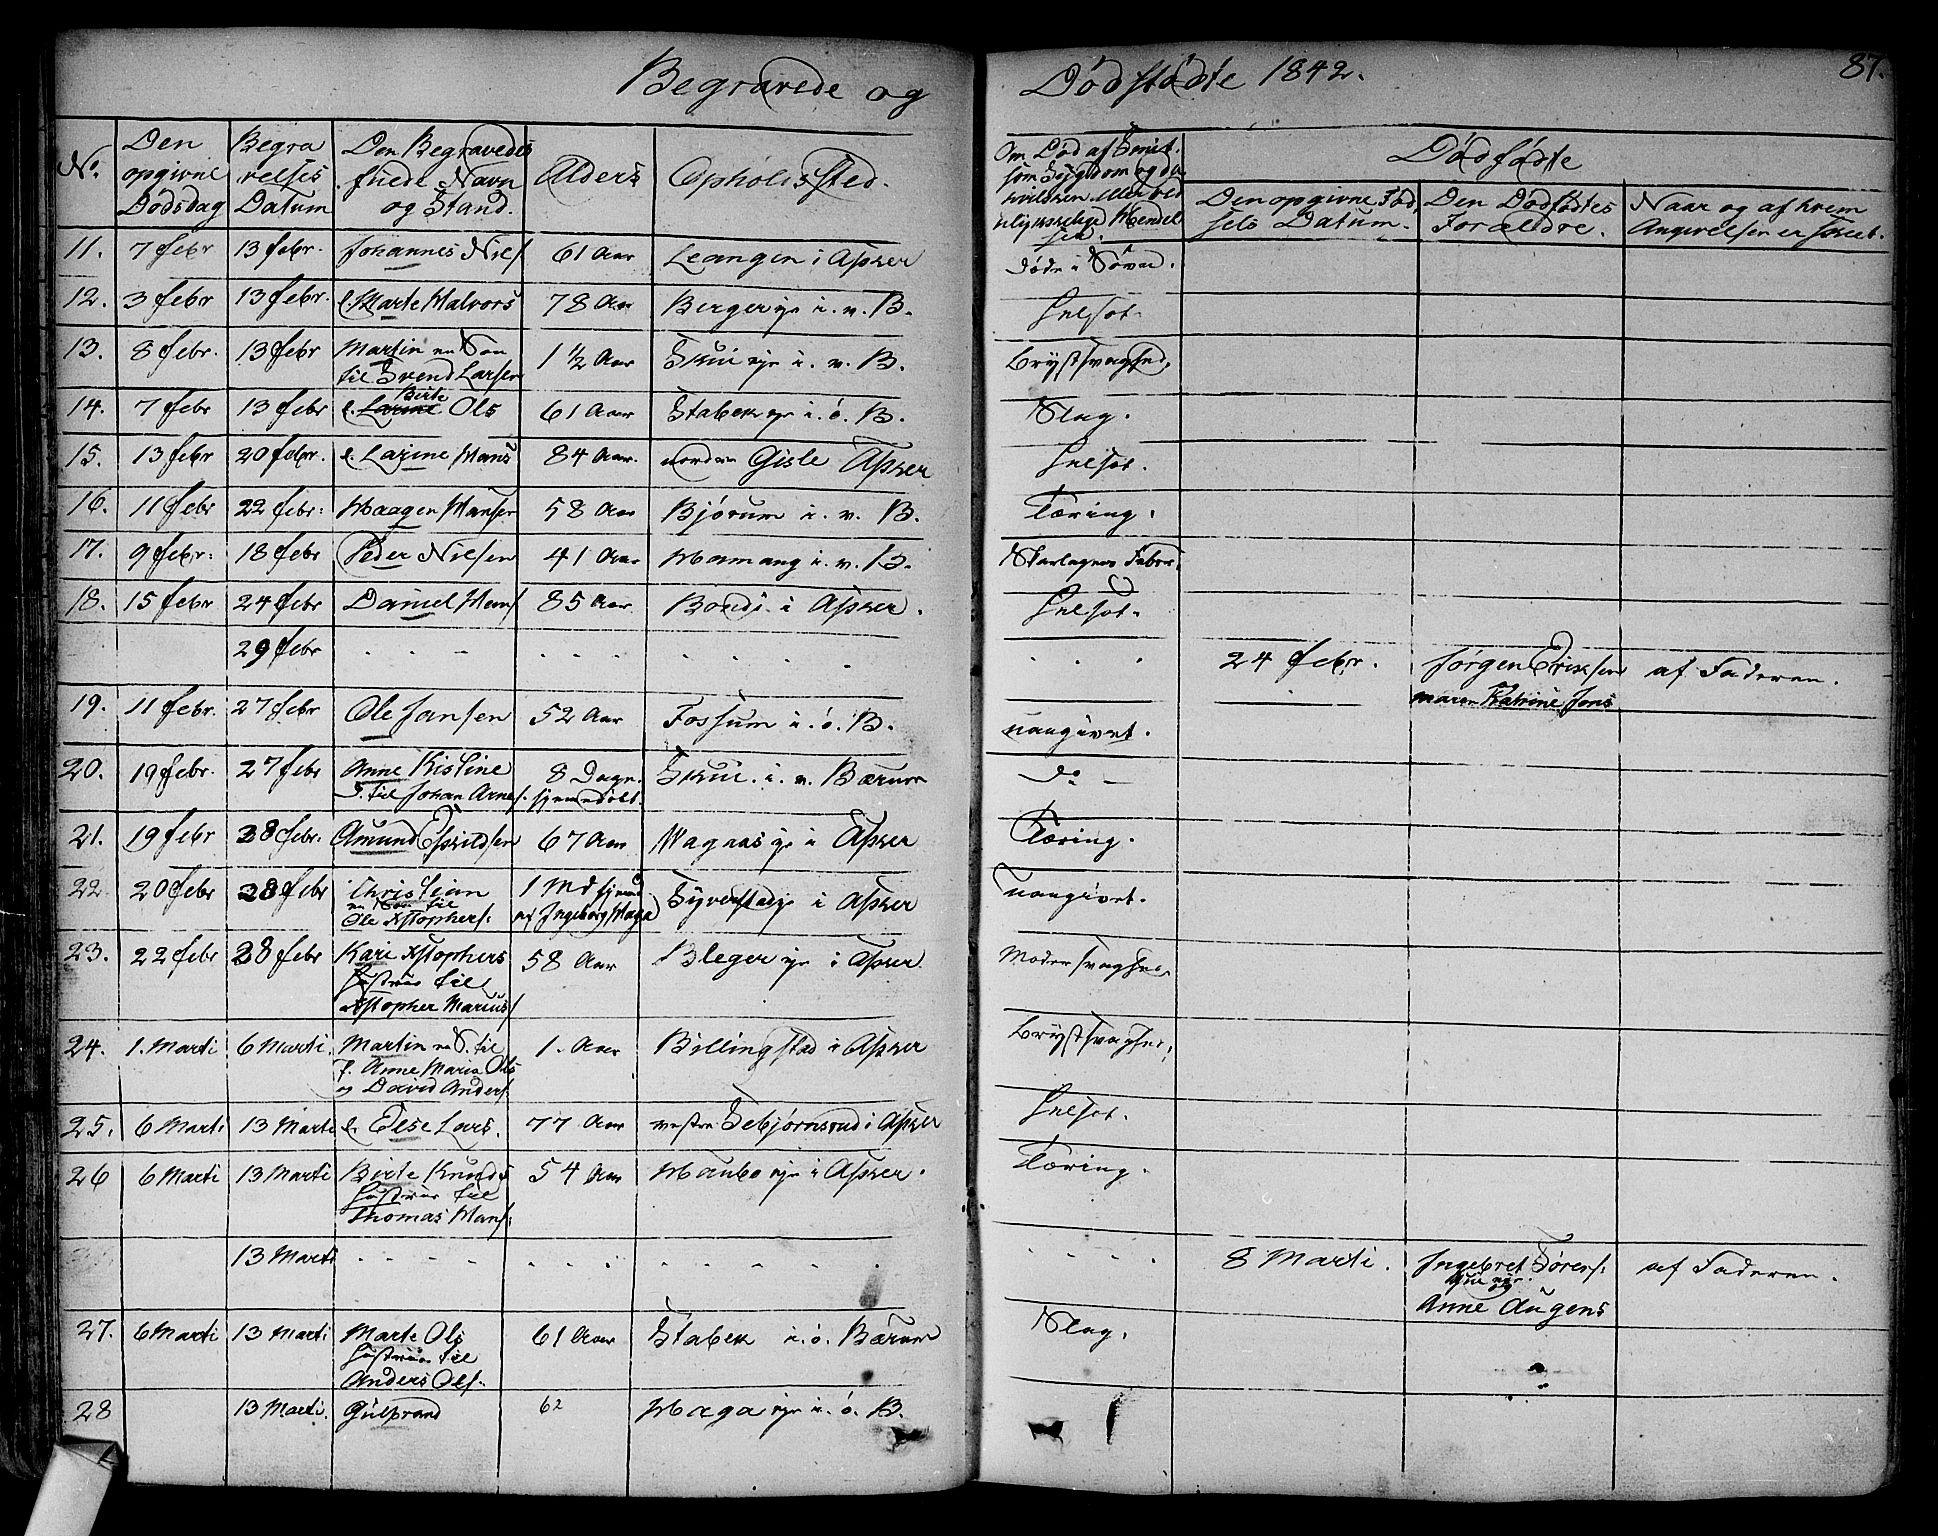 Begravede og Dödfödte 1842. 87.
No. Den opgivne Dödsdag Begravelses Datum Den Begravedes fulde Navn og Stand. Alder Opholdssted. Dödfödte
Den opgivne Födsels Datum. Den Dödfödtes Forældre. Naar og af hvem Angivelsen er skeet.
11. 7 febr 13 febr. Johannes Niels 61 Aar Leangen i Asker döde i Sövnd.
12. 3 febr 13 febr. e. Marte Halvors 78 Aar Berger eje i. v. B. Helsot.
13. 8 febr. 13 febr Martin en Sön 1 1/2 Aar Skui eje i. v. B. Brystsvaghed.
til Svend Larsen
Birte
14. 7 febr 13 febr e. Larine Ols 61 Aar Stabek eje i. ö. B. Slag.
15. 13 febr 20 febr. e. Larine Hans 84 Aar. nordre Gisle Asker Helsot.
16. 11 febr 22 febr. Haagen Hansen 58 Aar Bjórum i. v. B. Tæring.
17. 9 febr. 18 febr Peder Nielsen 41 Aar Hamang i. v. B.
18. 15 febr 24 febr Daniel Hans 85 Aar Bondi i Asker. Helsot.
29 febr . . . . . . . . . . 24 febr. Jörgen Eriksen af Faderen.
maren Katrine Jons
19. 11 febr. 27 febr Ole Jansen 52 Aar Fossum i. ö. B. uangivet.
20. 19 febr. 27 febr Anne Kistine 8 Dage Skui i. v. Bærum do -
D. til Johan Arnes. hjemmedöbt.
21. 19 febr 28 febr. Amund Eskildsen 67 Aar Vagnas eje i Asker Tæring.
22 20 febr 28 febr Christian 1 Md hjemd. Syverstadeje i Asker uangivet.
en Sön til af Ingeborg Haga
Ole Xstophers.
23. 22 febr 28 febr Kari Xstophers 58 Aar Bleger eje i Asker. Modersvaghed.
Hustrue til
Xstopher Marius
24. 1. Marti 6 Marti. Martin en S. til 1. Aar Billingstad i Asker Brystsvaghed.
f. Anne Maria Ols
og David Anders.
25. 6 Marti 13 Marti e. Else Lars. 77 Aar vestre Sebjörnsrud i Asker Helsot.
26 6 Marti 13 Marti Birte Knuds 54 Aar Haubo eje i Asker. Tæring.
Hustrue til
Thomas Hans.
13 Marti . . . . . . . . . . 8 Marti. Ingebret Sörens. af Faderen.
Anne Augens
27. 6 Marti 13 Marti Marte Ols 61 Aar Stabek i. ö. Bærum Slag.
Hustrue til
Anders Ols.
28 13 Marti. Gulbrand 62 Haga eje i. ö. B.